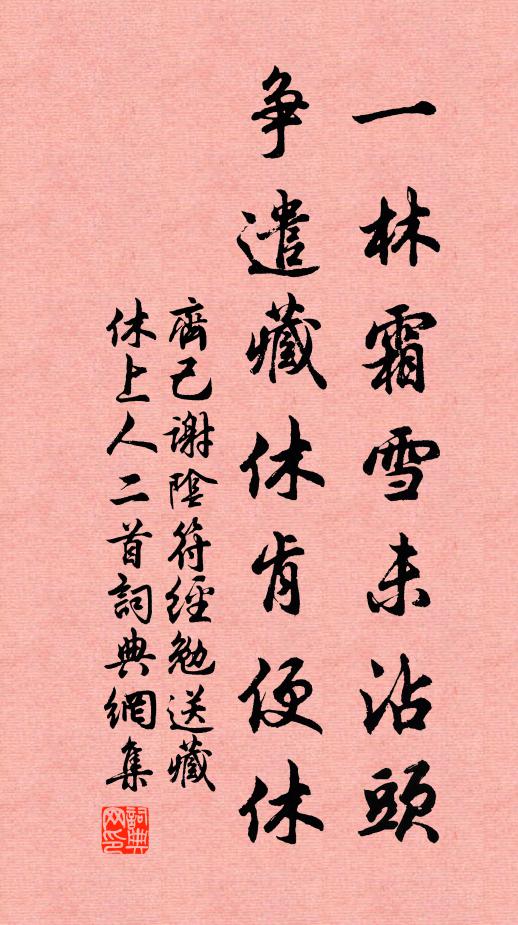 一林霜雪未沾頭
争遣藏休肯便休
齊己謝陰符經勉送藏
休上人二首詞典網集
詞典
网印